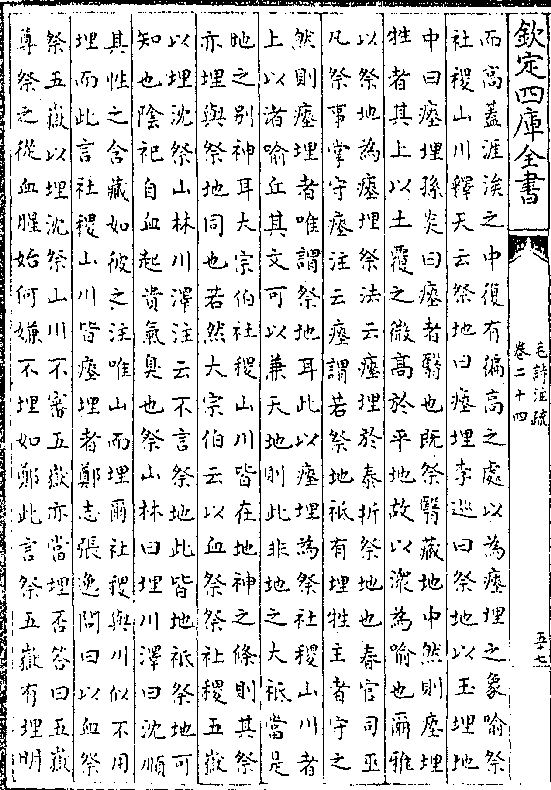 欽定四庫全書
毛詩注疏
卷二十四
五十七
而高蓋涯涘之中復有偏高之處以為瘞埋之象喻祭
社稷山川釋天云祭地曰瘞埋李巡曰祭地以玉埋地
中曰瘞埋孫炎曰瘞者翳也既祭翳藏地中然則瘞埋
牲者其上以土覆之微髙於平地故以漘為喻也爾雅
以祭地為瘞埋祭法云瘞埋於泰折祭地也春官司巫
凡祭事掌守瘞注云瘞謂若祭地祗有埋牲主者守之
然則瘞埋者唯謂祭地耳此以瘞埋為祭社稷山川者
上以渚喻丘其文可以兼天地則此非地之大祗當是
地之别神耳大宗伯社稷山川皆在地神之條則其祭
亦埋與祭地同也若然大宗伯云以血祭祭社稷五嶽
以埋沈祭山林川澤注云不言祭地此皆地祗祭地可
知也陰祀自血起貴氣臭也祭山林曰埋川澤曰沈順
其性之含藏如彼之注唯山而埋爾社稷與川似不用
埋而此言社稷山川皆瘞埋者鄭志張逸問曰以血祭
祭五嶽以埋沈祭山川不審五嶽亦當埋否答曰五嶽
尊祭之從血腥始何嫌不埋如鄭此言祭五嶽有埋明